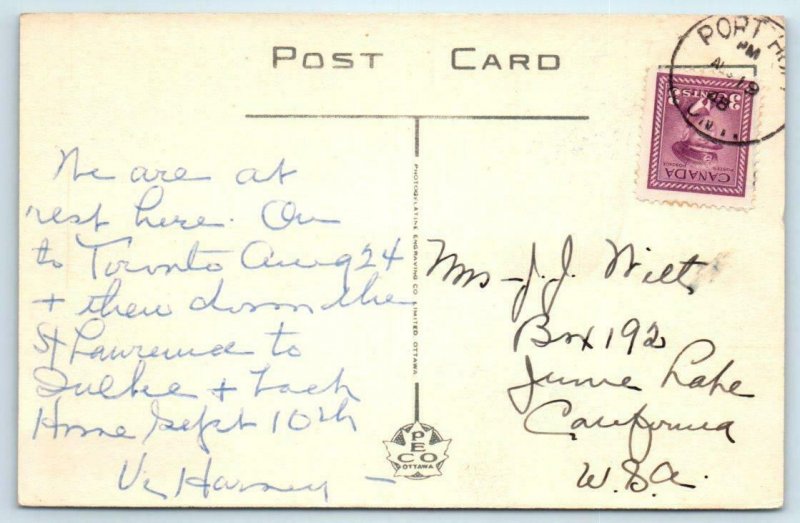 POST CARD
PORT HOPE
PM
AUG 19
48
ONT.
3 CENTS 3
POSTES POSTAGE
CANADA
We are at
rest here. On
to Toronto Aug 24
+ then down the
St Lawrence to
Quebec + back
Home Sept 10th
V. Harvey —
PHOTOGELATINE ENGRAVING CO. LIMITED OTTAWA
PECO
OTTAWA
Mrs - J. J. Wilt
Box 192
June Lake
California
U.S.A.